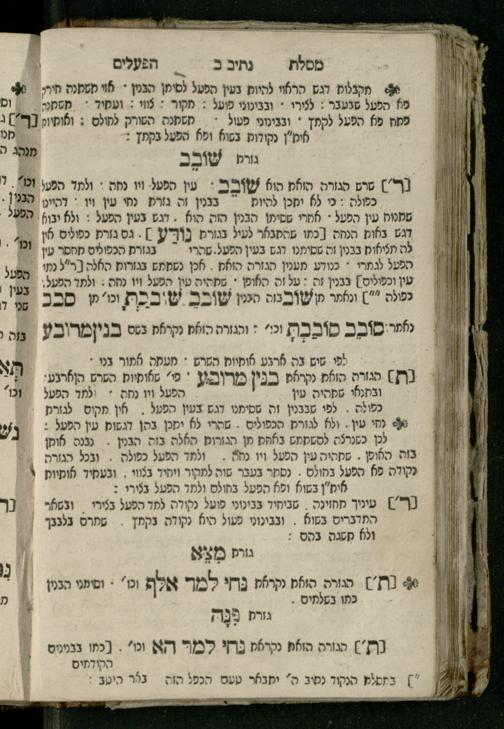 מסלת נתיב ב הפעלים
מקבלות דגש הראוי להיות בעין הפעל לסימן הבנין · אזי תשתנה חירק
פא הפעל שבעבר · לצירי · ובבינוני פועל : מקור : צווי : ועתיד · תשתנה
פתח פא הפעל לקמץ · ובבינוני פעול · תשתנה השורק לחולם : ואותיות
אית"ן נקודות בשוא ופא הפעל בקמץ :
גזרת שׁוֹבֵב
[ר'] שרש הגזרה הזאת הוא שׁוֹבֵב : עין הפעל ויו נחה · ולמד הפעל
כפולה : כי לא יתכן להיות בבנין זה גזרת נחי עין ויו · דהיינו
שתנוח עין הפעל · אחרי שסימן הבנין הזה הוא · דגש בעין הפעל : ולא יבוא
דגש באות הנחה [כמו שהתבאר לעיל בגזרת נוֹדַע] . גם גזרת כפולים אין
לה מציאות בבנין זה שסימנו דגש בעין הפעל · שהרי בגזרת הכפולים תחסר עין
הפעל לגמרי · כנודע מענין הגזרה הזאת · אכן נשתמש בגזרות האלה [ר"ל נחי
עין וכפולים] בבנין זה : על זה האופן · שתהיה עין הפעל ויו נחה : ולמד הפעל
כפולה ״] ונאמר מן שוב בזה הבנין שׁוֹבֵב שׁוֹבַבְתָּ וכו' מן סבב
נאמר סוֹבֵב סוֹבַבְתָּ וכו' : והגזרה הזאת נקראת בשם בנין מרובע
לפי שיש בה ארבע אותיות השרש · מעתה אמור בני ·
[ת] הגזרה הזאת נקראת בנין מרובע · פי' שאותיות השרש הן ארבע ·
ובתנאי שתהיה עין הפעל ויו נחה · ולמד הפעל
כפולה . לפי שבבנין זה שסימנו דגש בעין הפעל . אין מקום לגזרת
נחי עין . ולא לגזרת הכפולים . שהרי לא יתכן בהן דגשות עין הפעל :
לכן כשנרצה להשתמש באחת מן הגזרות האלה בזה הבנין . נבנה אותן
בזה האופן . שתהיה עין הפעל ויו נחה . ולמד הפעל כפולה . ובכל הגזרה
נקודה פא הפעל בחולם . נסתר בעבר שוה למקור ויחיד בצווי . ובעתיד אותיות
אית"ן בשוא ופא הפעל בחולם ולמד הפעל בצירי :
[ר'] עיניך תחזינה . שביחיד בבינוני פועל נקודה למד הפעל בצירי . ובשאר
המדברים בשוא . ובבינוני פעול היא נקודה בקמץ . שמרם בלבבך
ולא תשגה בהם :
גזרת מִצֵּא
[ת'] הגזרה הזאת נקראת נחי למד אלף וכו' · וסימני הבנין
כמו בשלמים .
גזרת פִּנָּה
[ת'] הגזרה הזאת נקראת נחי למד הא וכו' . [כמו בבנינים
הקודמים
״] במסלת הנקוד נתיב ה' יתבאר טעם הכפל הזה באר היטב :